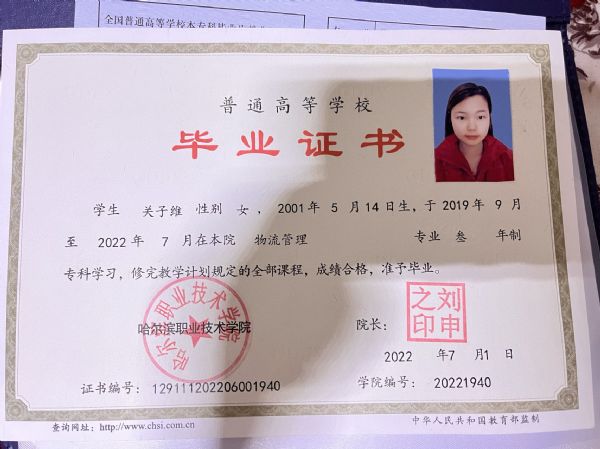 全国普通高等学校本专科毕业
普通高等学校
毕业证书
学生 关子维 性别 女 ，2001年 5 月14日生，于2019年 9月
至 2022年 7 月在本院 物流管理 专业 叁 年制
专科学习，修完教学计划规定的全部课程，成绩合格，准予毕业。
哈尔滨职业技术学院
哈尔滨职业技术学院
院长：
刘申之印
2022 年7 月1 日
证书编号：129111202206001940
学院编号：20221940
查询网址：http://www.chsi.com.cn
中华人民共和国教育部监制